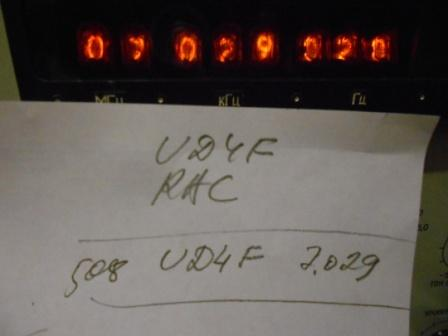 07 029 020
МГц кГц Гц
UD4F
RHC
508 UD4F 7.029